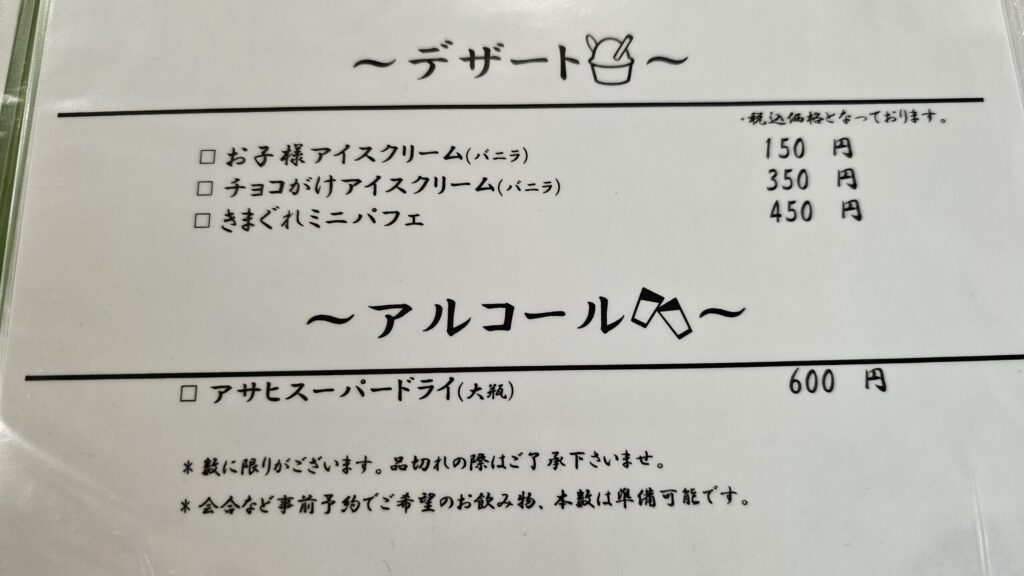 ～デザート～
・税込価格となっております。
□ お子様アイスクリーム(バニラ) 150 円
□ チョコがけアイスクリーム(バニラ) 350 円
□ きまぐれミニパフェ 450 円
～アルコール～
□ アサヒスーパードライ(大瓶) 600 円
＊数に限りがございます。品切れの際はご了承下さいませ。
＊会合など事前予約でご希望のお飲み物、本数は準備可能です。